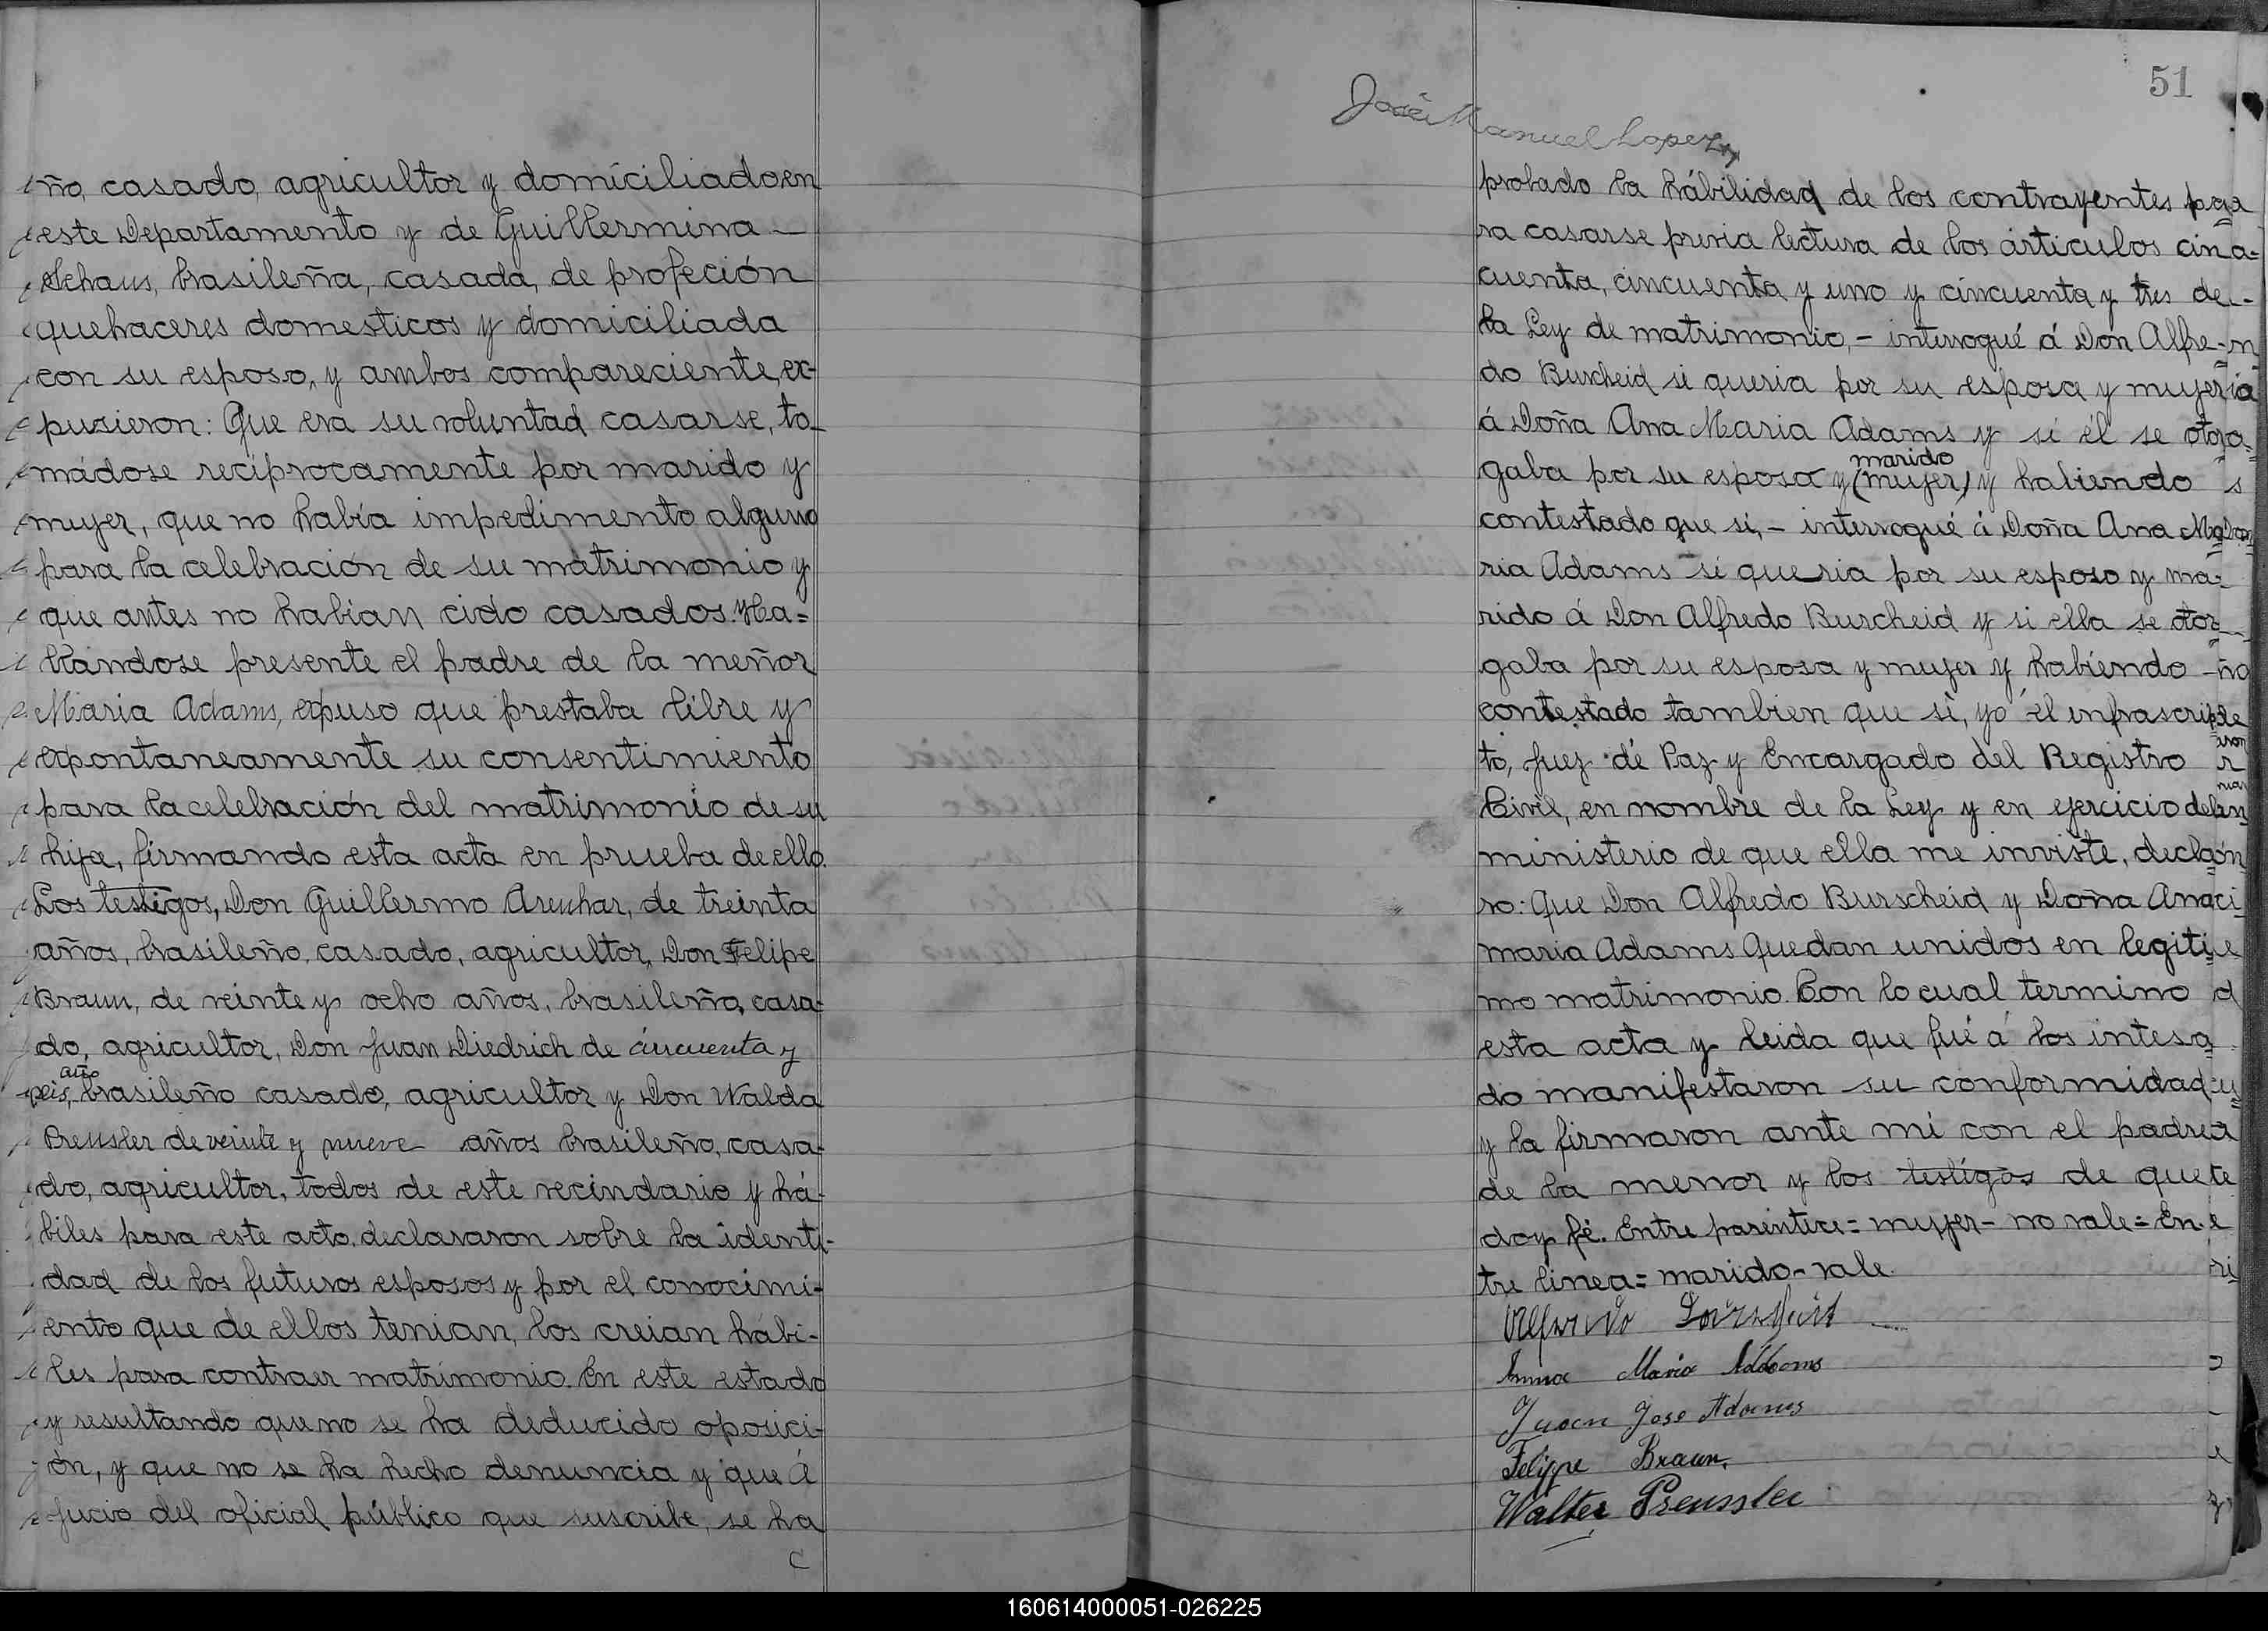 ño, casado, agricultor y domiciliado en
este Departamento y de Guillermina
Schaus, brasileña, casada, de profeción
quehaceres domesticos y domiciliada
con su esposo, y ambos compareciente, ex-
pusieron: Que era su voluntad casarse, to-
mádose recíprocamente por marido y
mujer, que no había impedimento alguno
para la celebración de su matrimonio y
que antes no habían cido casados. Ha=
llandose presente el padre de la meñor
Maria Adams, expuso que prestaba libre y
expontaneamente su consentimiento
para la celebración del matrimonio de su
hija, firmando esta acta en prueba de ello.
Los testigos, Don Guillermo Arenhar, de treinta
años, brasileño, casado, agricultor, Don Felipe
Braun, de veinte y ocho años, brasileño, casa-
do, agricultor, Don Juan Diedrich de cincuenta y
seis, año brasileño casado, agricultor y Don Walda
Preussler de veinte y nueve años brasileño, casa-
do, agricultor, todos de este vecindario y há-
biles para este acto, declararon sobre la identi-
dad de los futuros esposos y por el conocimi-
ento que de ellos tenian, los creian habi-
les para contraer matrimonio. En este estado
y resultando que no se ha deducido oposici-
ón, y que no se ha hecho denuncia y que á
jucio del oficial público que suscribe, se ha
51
José Manuel Lopez
probado la hábilidad de los contrayentes pa
ra casarse previa lectura de los árticulos cin
cuenta, cincuenta y uno y cincuenta y tres de
la Ley de matrimonio,- interrogué á Don Alfre-
do Burscheid si queria por su esposa y mujer
á Doña Ana Maria Adams y si él se otor
gaba por su esposo y (mujer) marido y habiendo
contestado que si,- interrogué á Doña Ana Ma
ria Adams si queria por su esposo y ma-
rido á Don Alfredo Burscheid y si ella se otor
gaba por su esposa y mujer y habiendo
contestado tambien que sì, yo el infrascrip
to, Juez de Paz y Encargado del Registro
Civil, en nombre de la Ley y en ejercicio del
ministerio de que ella me inviste, decla
ro: Que Don Alfredo Burscheid y Doña Ana
maria Adams Quedan unidos en legiti
mo matrimonio. Con lo cual termino
esta acta y leida que fué á los intesa
do manifestaron su conformidad
y la firmaron ante mí con el padre
de la menor y los testigos de que
doy fé. Entre paréntice= mujer- no vale= En
tre linea= marido- vale.
Alfredo Burscheid
Anna Maria Addams
Juan Jose Adams
Felippe Braun,
Walter Preussler
160614000051-026225